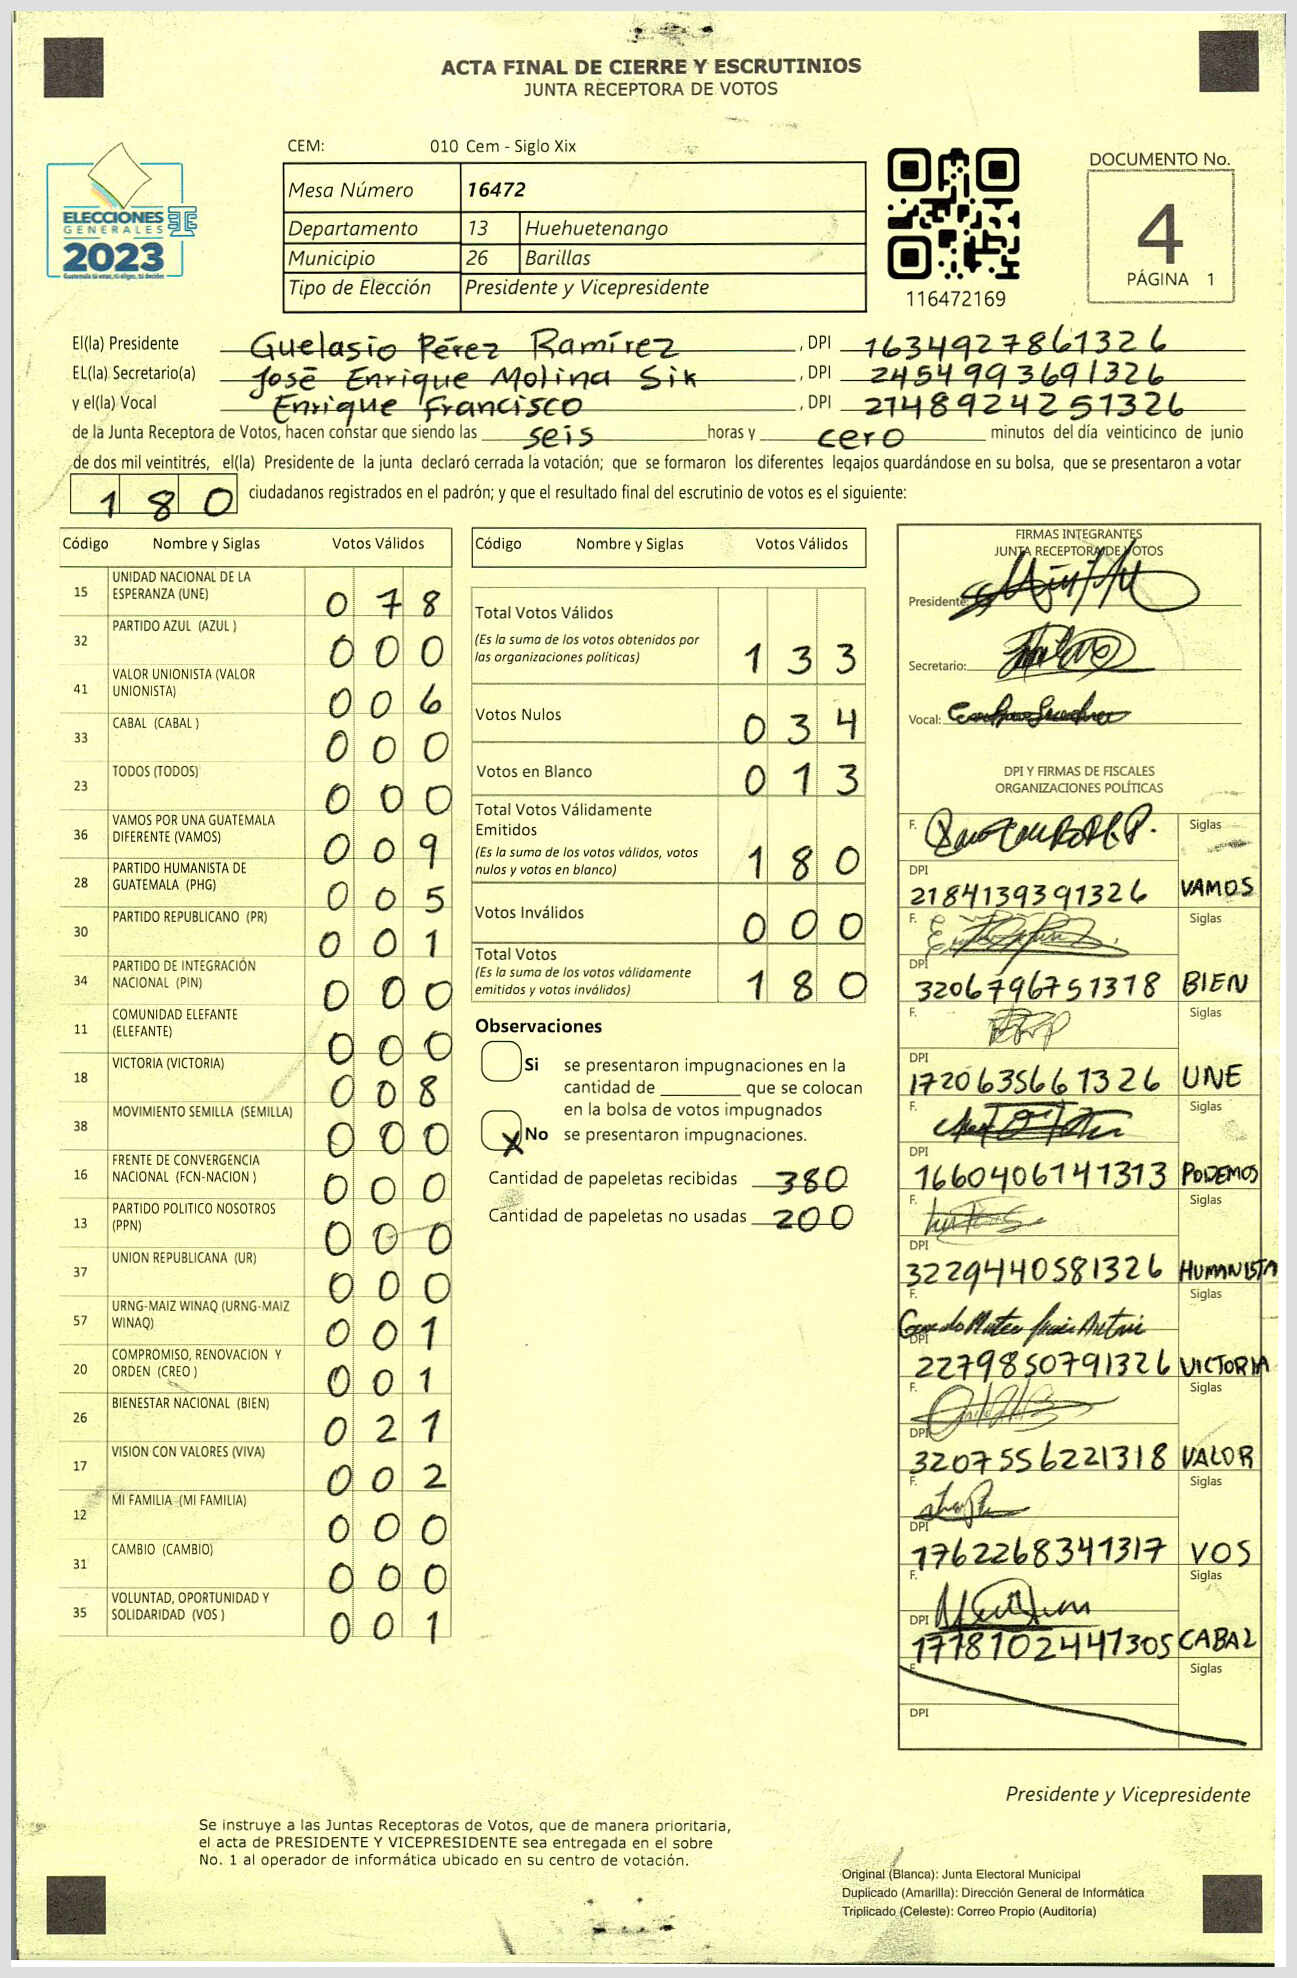 ACTA FINAL DE CIERRE Y ESCRUTINIOS
JUNTA RECEPTORA DE VOTOS
CEM: 010 Cem - Siglo Xix
Mesa Número 16472
Departamento 13 Huehuetenango
Municipio 26 Barillas
Tipo de Elección Presidente y Vicepresidente
ELECCIONES
GENERALES
2023
Guatemala tú eres, tú eliges, tú decides
116472169
DOCUMENTO No.
4
PÁGINA 1
El(la) Presidente Guelasio Pérez Ramírez , DPI 1634927861326
EL(la) Secretario(a) José Enrique Molina Sik , DPI 2454993691326
y el(la) Vocal Enrique Francisco , DPI 2148924251326
de la Junta Receptora de Votos, hacen constar que siendo las seis horas y cero minutos del día veinticinco de junio
de dos mil veintitrés, el(la) Presidente de la junta declaró cerrada la votación; que se formaron los diferentes legajos guardándose en su bolsa, que se presentaron a votar
180 ciudadanos registrados en el padrón; y que el resultado final del escrutinio de votos es el siguiente:
Código Nombre y Siglas Votos Válidos
15 UNIDAD NACIONAL DE LA
ESPERANZA (UNE) 078
32 PARTIDO AZUL (AZUL ) 000
41 VALOR UNIONISTA (VALOR
UNIONISTA) 006
33 CABAL (CABAL ) 000
23 TODOS (TODOS) 000
36 VAMOS POR UNA GUATEMALA
DIFERENTE (VAMOS) 009
28 PARTIDO HUMANISTA DE
GUATEMALA (PHG) 005
30 PARTIDO REPUBLICANO (PR) 001
34 PARTIDO DE INTEGRACIÓN
NACIONAL (PIN) 000
11 COMUNIDAD ELEFANTE
(ELEFANTE) 000
18 VICTORIA (VICTORIA) 008
38 MOVIMIENTO SEMILLA (SEMILLA) 000
16 FRENTE DE CONVERGENCIA
NACIONAL (FCN-NACION ) 000
13 PARTIDO POLITICO NOSOTROS
(PPN) 000
37 UNION REPUBLICANA (UR) 000
57 URNG-MAIZ WINAQ (URNG-MAIZ
WINAQ) 001
20 COMPROMISO, RENOVACION Y
ORDEN (CREO ) 001
26 BIENESTAR NACIONAL (BIEN) 021
17 VISION CON VALORES (VIVA) 002
12 MI FAMILIA (MI FAMILIA) 000
31 CAMBIO (CAMBIO) 000
35 VOLUNTAD, OPORTUNIDAD Y
SOLIDARIDAD (VOS ) 001
Código Nombre y Siglas Votos Válidos
Total Votos Válidos
(Es la suma de los votos obtenidos por
las organizaciones políticas) 133
Votos Nulos 034
Votos en Blanco 013
Total Votos Válidamente
Emitidos
(Es la suma de los votos válidos, votos
nulos y votos en blanco) 180
Votos Inválidos 000
Total Votos
(Es la suma de los votos válidamente
emitidos y votos inválidos) 180
Observaciones
Si se presentaron impugnaciones en la
cantidad de ________ que se colocan
en la bolsa de votos impugnados
X No se presentaron impugnaciones.
Cantidad de papeletas recibidas 380
Cantidad de papeletas no usadas 200
FIRMAS INTEGRANTES
JUNTA RECEPTORA DE VOTOS
Presidente:
Secretario:
Vocal:
DPI Y FIRMAS DE FISCALES
ORGANIZACIONES POLÍTICAS
F. Siglas
DPI
2184139391326 VAMOS
F. Siglas
DPI
3206796751318 BIEN
F. Siglas
DPI
1720635661326 UNE
F. Siglas
DPI
1660406141313 PODEMOS
F. Siglas
DPI
3229440581326 HUMANISTA
F. Siglas
DPI
2279850791326 VICTORIA
F. Siglas
DPI
3207556221318 VALOR
F. Siglas
DPI
1762268341317 VOS
F. Siglas
DPI
1778102441305 CABAL
F. Siglas
DPI
Presidente y Vicepresidente
Se instruye a las Juntas Receptoras de Votos, que de manera prioritaria,
el acta de PRESIDENTE Y VICEPRESIDENTE sea entregada en el sobre
No. 1 al operador de informática ubicado en su centro de votación.
Original (Blanca): Junta Electoral Municipal
Duplicado (Amarilla): Dirección General de Informática
Triplicado (Celeste): Correo Propio (Auditoría)